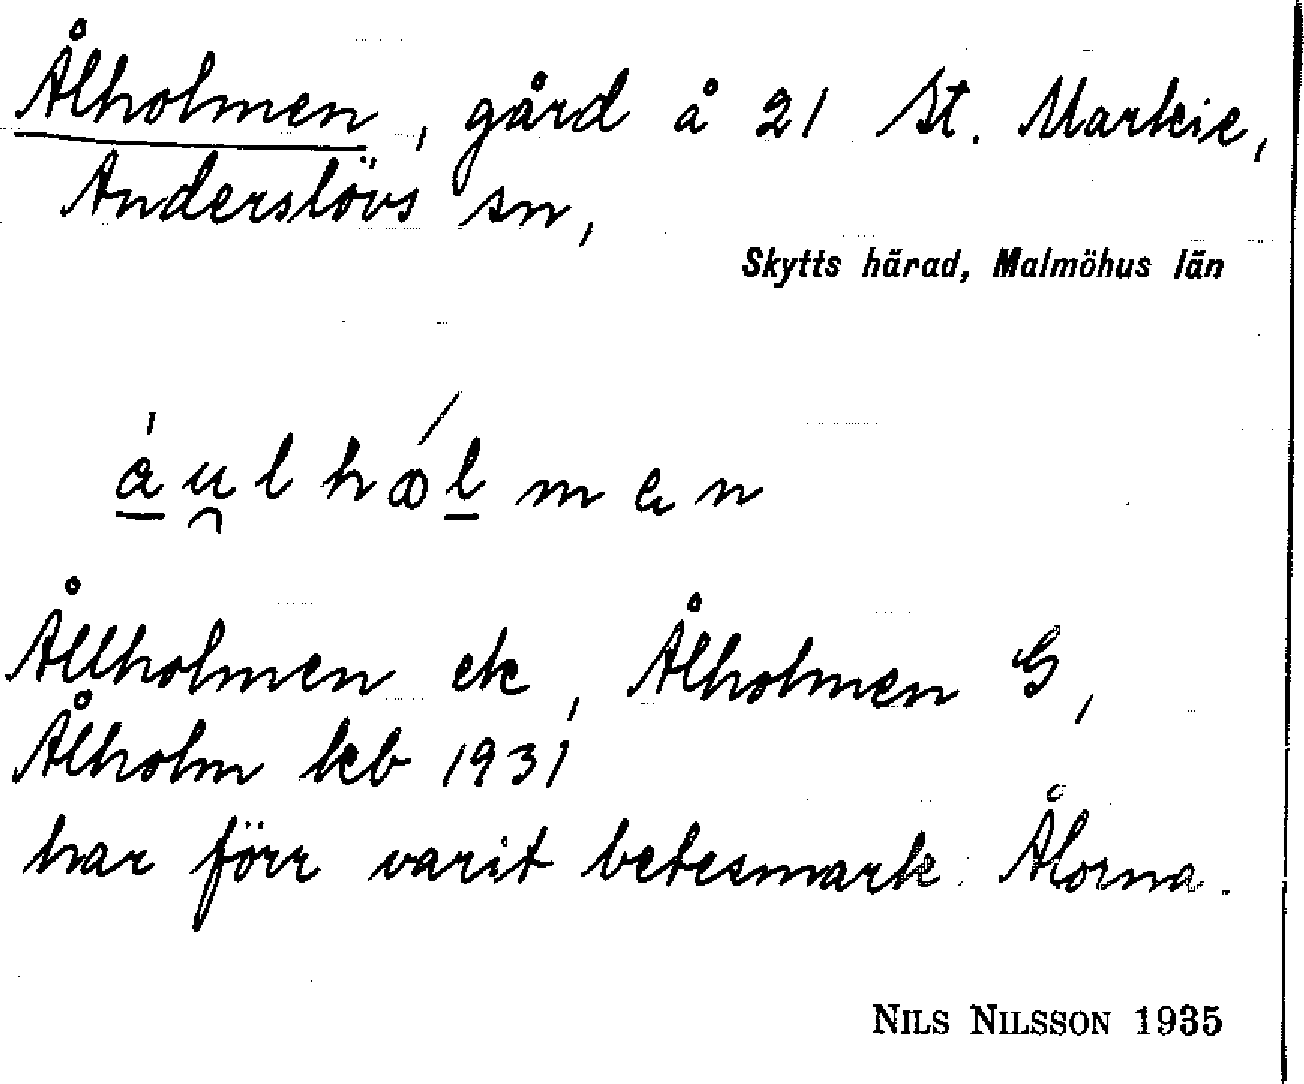 Ålholmen, gård å 21 St. Markie,
Anderslövs sn,
Skytts härad, Malmöhus län
a̲u̯lhol̲men
Ållholmen ek, Ålholmen G,
Ålholm kb 1931
har förr varit betesmark: Ålorna.
NILS NILSSON 1935